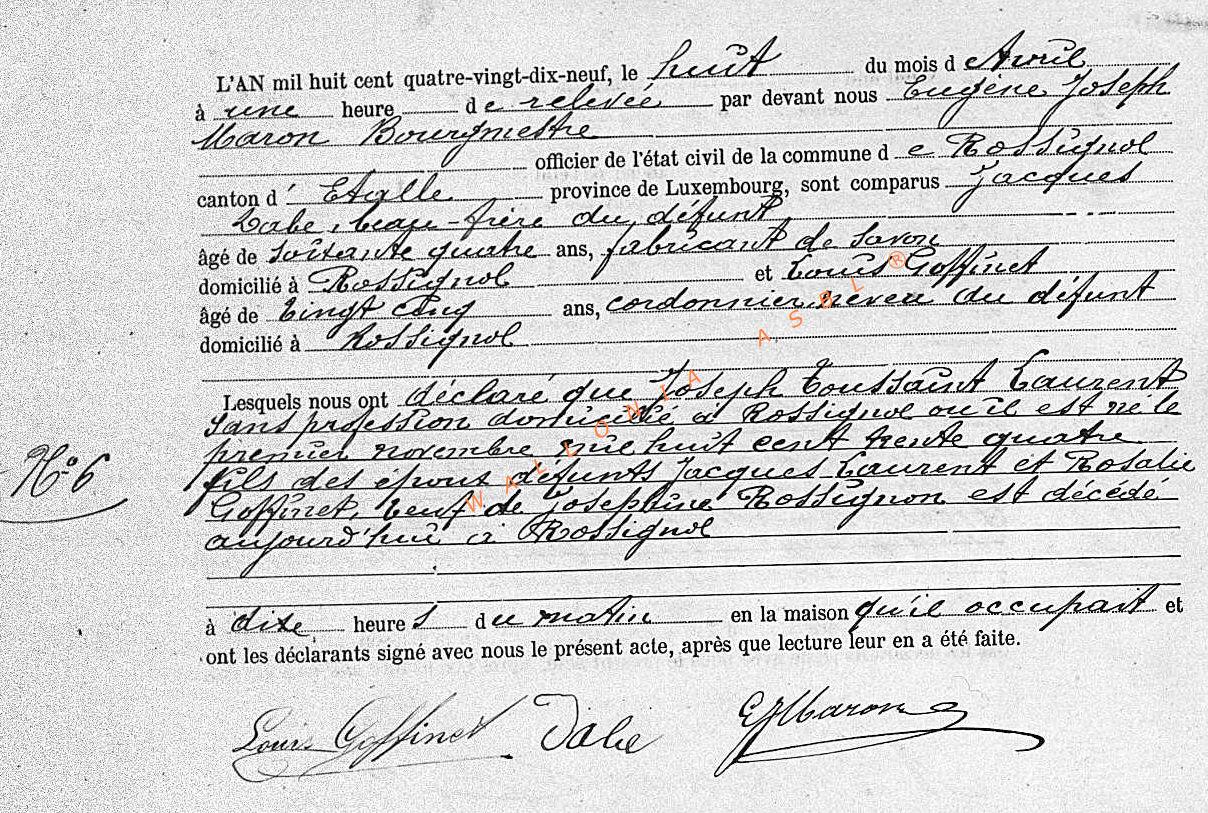 L'AN mil huit cent quatre-vingt-dix-neuf, le huit du mois d Avril
à une heure de relevée par devant nous Eugène Joseph
Maron Bourgmestre
officier de l'état civil de la commune de Rossignol
canton d' Etalle province de Luxembourg, sont comparus Jacques
beau-frère du défunt
âgé de soixante quatre ans, fabricant de savon
domicilié à Rossignol et Louis Goffinet
âgé de vingt cinq ans, cordonnier neveu du défunt
domicilié à Rossignol
Lesquels nous ont déclaré que Joseph Toussaint Laurent
sans profession domicilié à Rossignol où il est né le
premier novembre mil huit cent trente quatre
fils des époux défunts Jacques Laurent et Rosalie
Goffinet, veuf de Joséphine Rossignon est décédé
aujourd'hui à Rossignol
N° 6
à dixe heures du matin en la maison qu'il occupait et
ont les déclarants signé avec nous le présent acte, après que lecture leur en a été faite.
Louis Goffinet EJMaron
WALLONIA ASBL ®